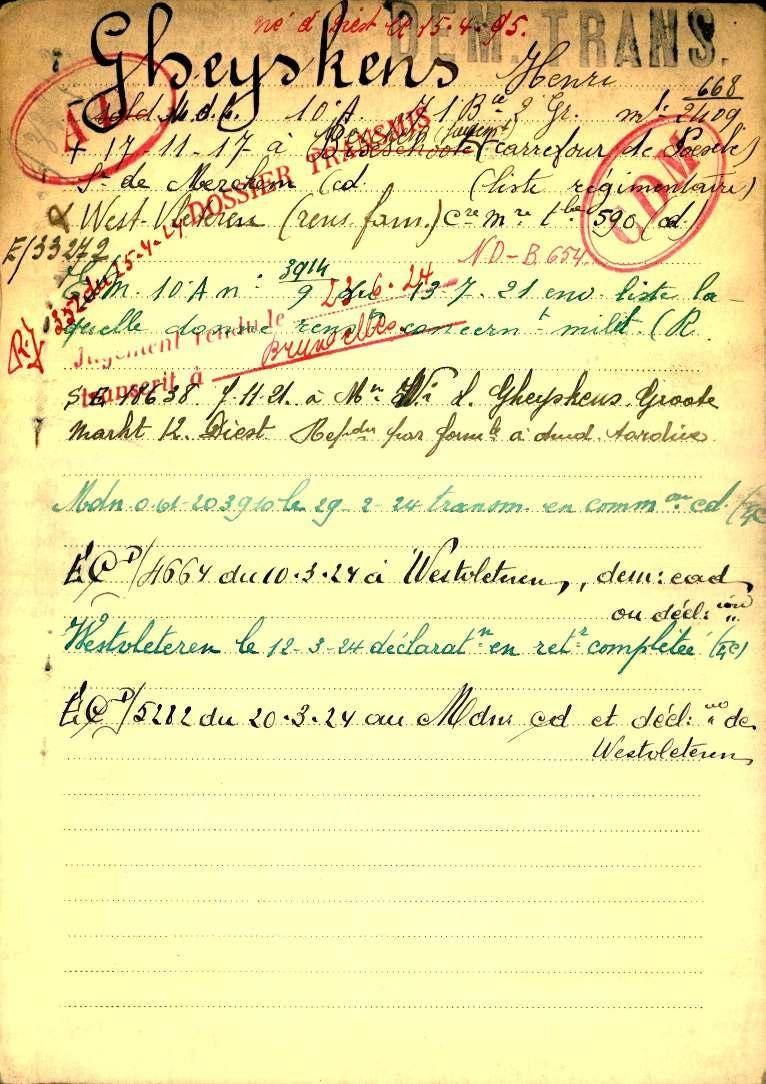 né à Diest le 15.4.95.
DEM. TRANS.
Gheyskens Henri
668
Sold M.d.L. 10 A. 41 Bie 2 Gr. mle 2409
+ 17-11-17 à Merckem (jugemt) (carrefour de Poesele)
St de Merckem (cd (liste régimentaire)
West-Vleteren (rens. fam.) cre mre tbe 590 (cd)
CDM
E/33272
N D - B 654
DOSSIER TRANSMIS
R.J 352 du 15-4-24
3914
E.M. 10 A n° 9 du 13-7-21 env. liste la-
quelle donne renst concernt milit. (R
Jugement rendu le 23.6.24
transcrit à Bruxelles
S.E. 11638. 7.11.21. à Mr Wi L. Gheyskens. Groote
Markt 12. Diest par formle à dmd. tardive
Mdn 0.61-203910 le 29-2-24 transm. en common cd. (4c
E.C.D/4664 du 10.3.24 à Westvleteren, dem: cad
ou décl: ion
Westvleteren le 12-3-24 déclaratn en retr complétée (4c)
E.C.D/5282 du 20.3.24 au Mdn cd et décl: on de
Westvleteren